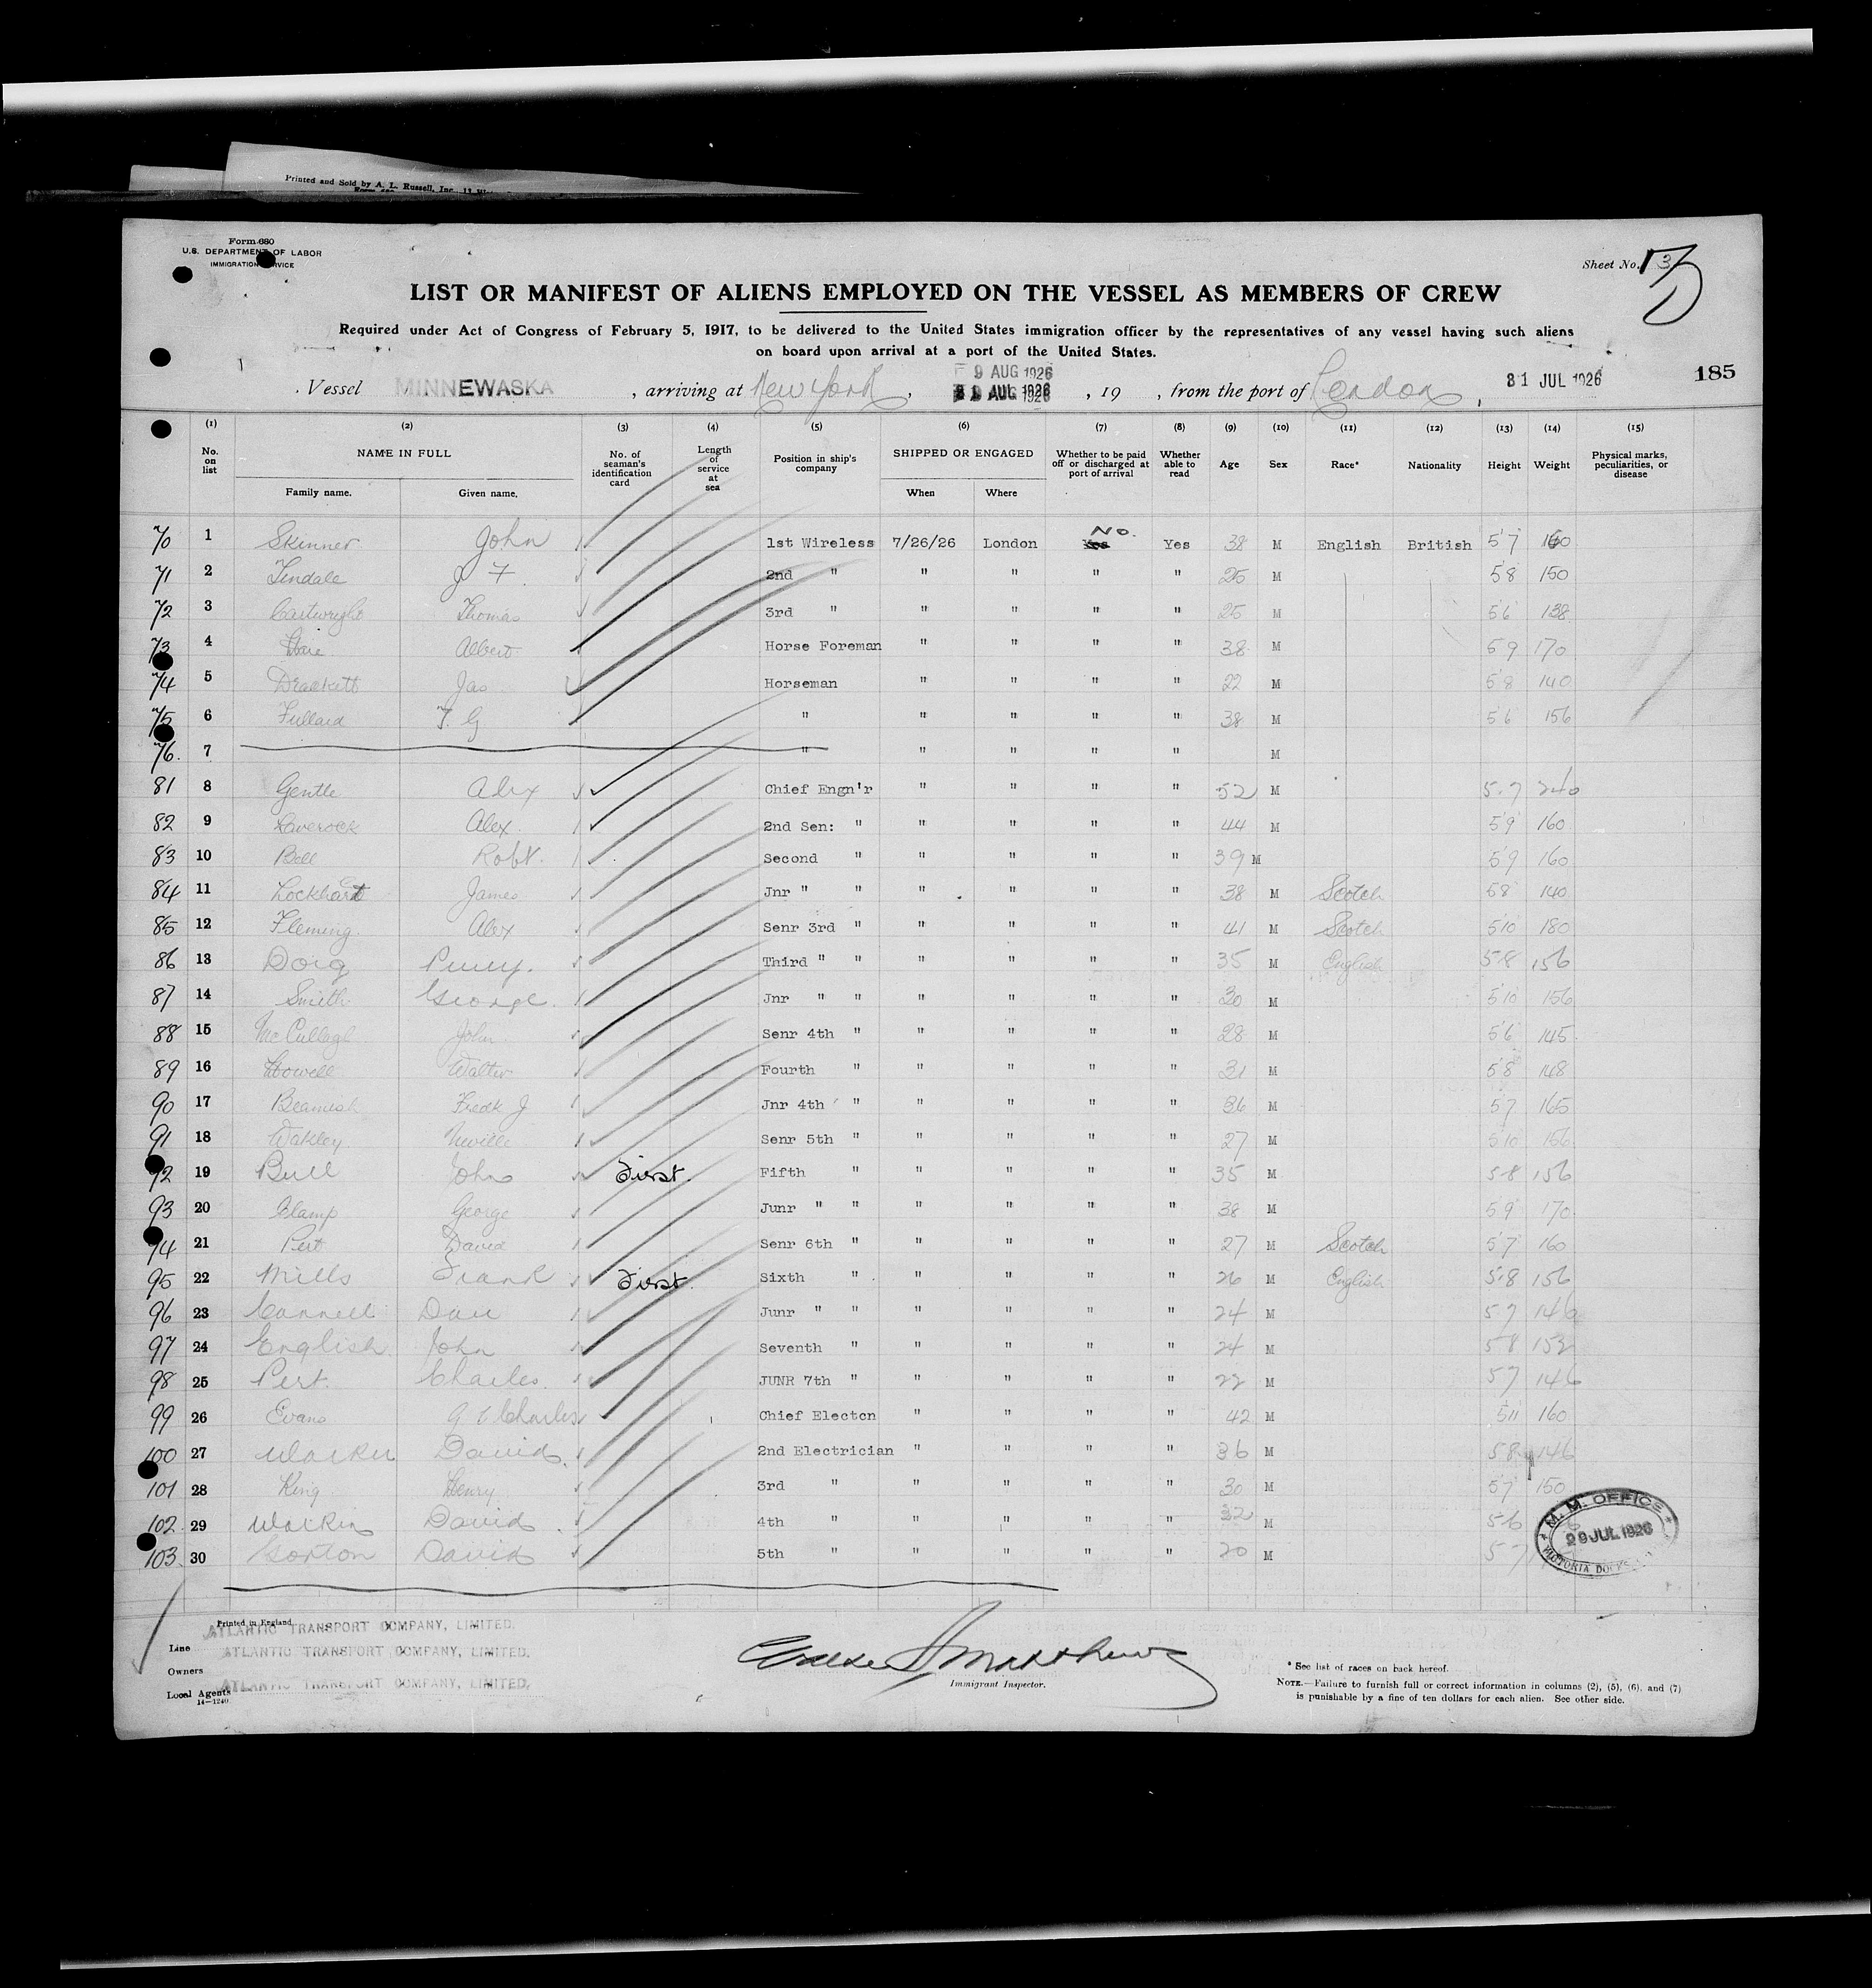 Printed and Sold by A. L. Russell, Inc., 
Form 680
U.S. DEPARTMENT OF LABOR
IMMIGRATION SERVICE
Sheet No. 3
LIST OR MANIFEST OF ALIENS EMPLOYED ON THE VESSEL AS MEMBERS OF CREW
Required under Act of Congress of February 5, 1917, to be delivered to the United States immigration officer by the representatives of any vessel having such aliens
on board upon arrival at a port of the United States.
9 AUG 1926
Vessel MINNEWASKA, arriving at New York, AUG 1926, 19 , from the port of London, 31 JUL 1926 185
(1) (2) (3) (4) (5) (6) (7) (8) (9) (10) (11) (12) (13) (14) (15)
No. on list NAME IN FULL Family name. Given name. No. of seaman's identification card Length of service at sea Position in ship's company SHIPPED OR ENGAGED When Where Whether to be paid off or discharged at port of arrival Whether able to read Age Sex Race* Nationality Height Weight Physical marks, peculiarities, or disease
70 1 Skinner John 1st Wireless 7/26/26 London No. Yes 38 M English British 5'7 160
71 2 Tindale J F 2nd " " " " " 25 M 5 8 150
72 3 Cartwright Thomas 3rd " " " " " 25 M 5 6 138
73 4 Albert Horse Foreman " " " " 38 M 5 9 170
74 5 Brackett Jas Horseman " " " " 22 M 5 8 140
75 6 Fullard T. G " " " " " 38 M 5 6 156
76. 7 " " " " " M
81 8 Gentle Alex Chief Engn'r " " " " 52 M 5.7 240
82 9 Laverock Alex. 2nd Sen: " " " " " 44 M 5 9 160
83 10 Bell Robt. Second " " " " " 39 M 5 9 160
84 11 Lockhart James Jnr " " " " " " 38 M Scotch 5 8 140
85 12 Fleming Alex Senr 3rd " " " " " 41 M Scotch 5 10 180
86 13 Doig Percy. Third " " " " " " 35 M English 5-8 156
87 14 Smith George. Jnr " " " " " " 30 M 5 10 156
88 15 McCullagh John Senr 4th " " " " " 28 M 5 6 145
89 16 Howell Walter Fourth " " " " " 31 M 5 8 148
90 17 Beamish Fredk J Jnr 4th " " " " " 36 M 5 7 165
91 18 Wakley Neville Senr 5th " " " " " 27 M 5 10 156
92 19 Bull John First. Fifth " " " " " 35 M 5-8 156
93 20 Clamp George Junr " " " " " " 38 M 5 9 170
94 21 Pert David Senr 6th " " " " " 27 M Scotch 5 7 160
95 22 Mills Frank First. Sixth " " " " " 26 M English 5-8 156
96 23 Cannell Dan Junr " " " " " " 24 M 5 7 146
97 24 English John Seventh " " " " " 24 M 5 8 152
98 25 Pert. Charles. JUNR 7th " " " " " 22 M 5 7 146
99 26 Evans Charles Chief Electcn " " " " 42 M 5 11 160
100 27 David. 2nd Electrician " " " " 36 M 5 8 146
101 28 King Henry 3rd " " " " " 30 M 5 7 150
102 29 David 4th " " " " " 32 M 5 6
103 30 Gorton David 5th " " " " " 20 M 5 7
M. M. OFFICE
29 JUL 1926
VICTORIA DOCKS
Printed in England
Line ATLANTIC TRANSPORT COMPANY, LIMITED.
Owners ATLANTIC TRANSPORT COMPANY, LIMITED.
Local Agents ATLANTIC TRANSPORT COMPANY, LIMITED.
14—1240
Matthews
Immigrant Inspector.
* See list of races on back hereof.
NOTE.—Failure to furnish full or correct information in columns (2), (5), (6), and (7)
is punishable by a fine of ten dollars for each alien. See other side.